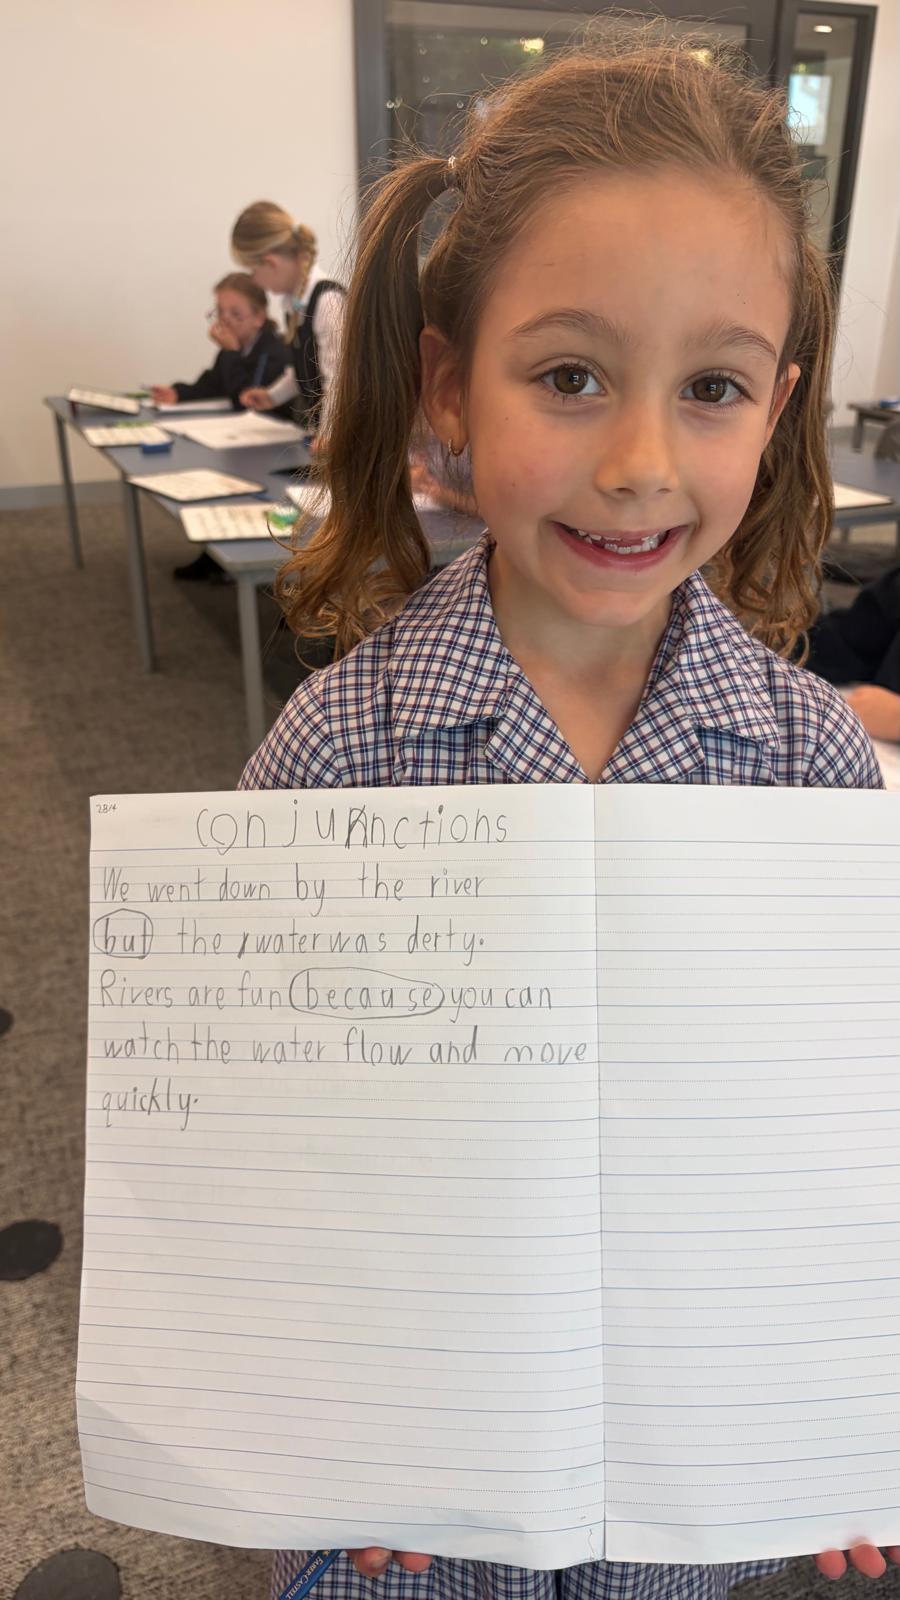 28/4
conjunctions
We went down by the river
but the water was derty.
Rivers are fun because you can
watch the water flow and move
quickly.
FABER-CASTELL